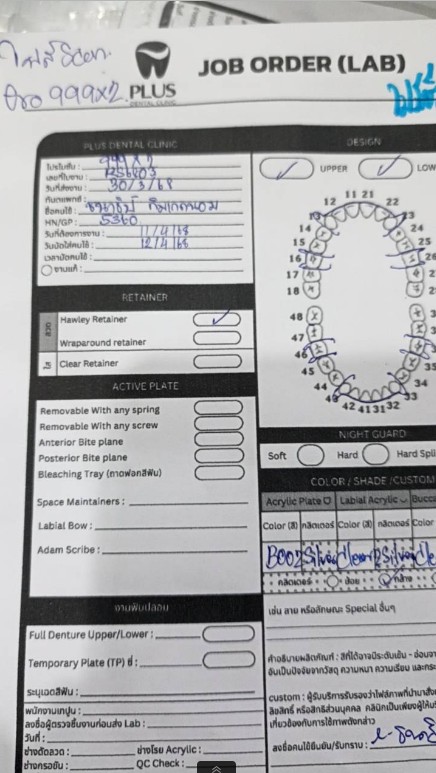 ไฟล์ Scan.
โปร 999x2
PLUS
DENTAL CLINIC
JOB ORDER (LAB)
PLUS DENTAL CLINIC
โปรโมชั่น : 999 x 2
เลขที่ใบงาน :
วันที่ส่งงาน : 30/3/68
ทันตแพทย์ :
ชื่อคนไข้ :
HN/GP : 5360
วันที่ต้องการงาน : 11/4/68
วันนัดใส่คนไข้ : 12/4/68
เวลานัดคนไข้ :
งานแก้ :
RETAINER
ลวด
Hawley Retainer
Wraparound retainer
ใส
Clear Retainer
ACTIVE PLATE
Removable With any spring
Removable With any screw
Anterior Bite plane
Posterior Bite plane
Bleaching Tray (ถาดฟอกสีฟัน)
Space Maintainers :
Labial Bow :
Adam Scribe :
งานฟันปลอม
Full Denture Upper/Lower :
Temporary Plate (TP) ซี่ :
ระบุเฉดสีฟัน :
พนักงานเทปูน :
ลงชื่อผู้ตรวจชิ้นงานก่อนส่ง Lab :
วันที่ :
ช่างดัดลวด : ช่างโรย Acrylic :
ช่างกรอขัด : QC Check :
DESIGN
UPPER LOW
11 21
12 22
13 23
14
15
16 26
17 2
18 2
48 3
47 3
46
45 35
44 34
43 33
42 41 31 32
NIGHT GUARD
Soft Hard Hard Spli
COLOR / SHADE /CUSTOM
Acrylic Plate Labial Acrylic Bucc
Color (สี) กลิตเตอร์ Color (สี) กลิตเตอร์ Color
B002 Silver Clear Silver Cle
กลิตเตอร์ น้อย กลาง
เช่น ลาย หรือลักษณะ Special อื่นๆ
คำอธิบายผลิตภัณฑ์ : สีที่ได้อาจมีระดับเข้ม - อ่อนจา
อันเป็นปัจจัยจากวัสดุ ความหนา ความเรียบ และกระ
custom : ผู้รับบริการรับรองว่าไฟล์ภาพที่นำมาสั่ง
ลิขสิทธิ์ หรือสิทธิส่วนบุคคล คลินิกเป็นเพียงผู้ให้บริ
เกี่ยวข้องกับการใช้ภาพดังกล่าว
ลงชื่อคนไข้ยืนยัน/รับทราบ :